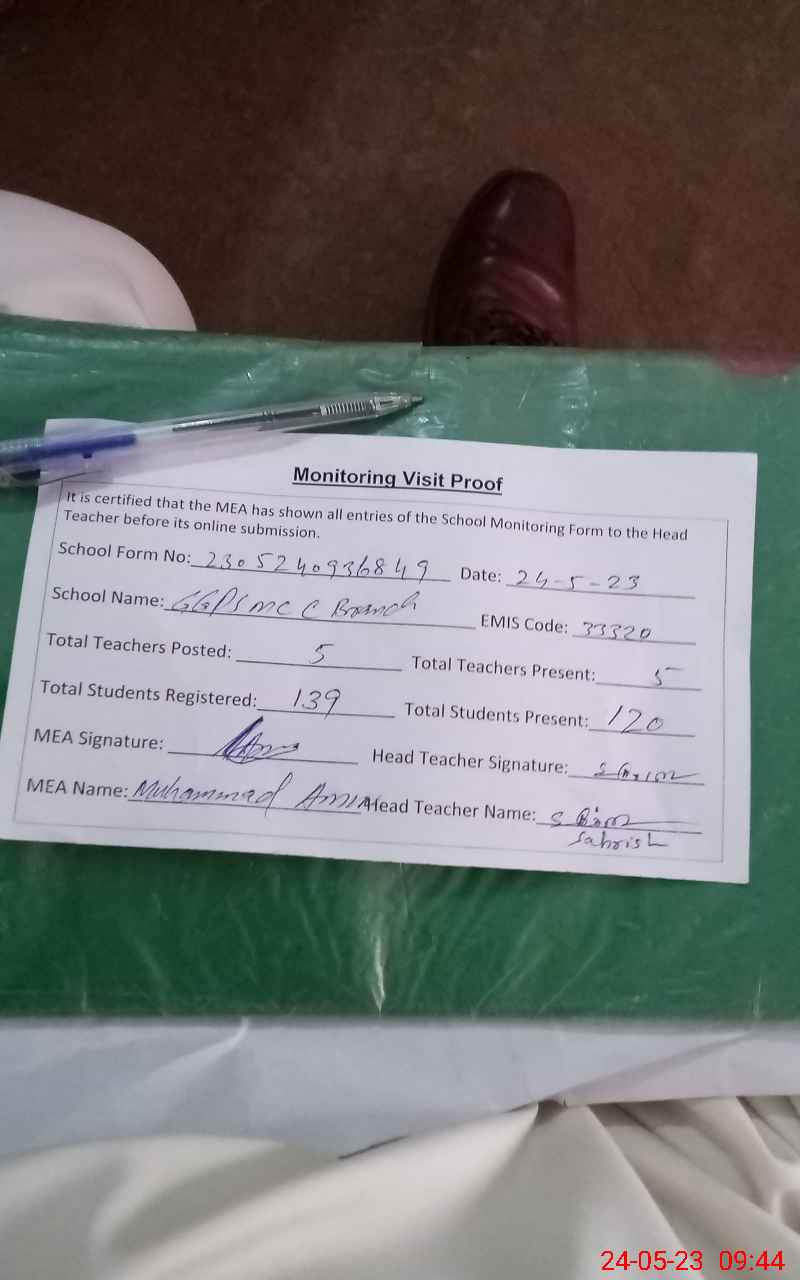 Monitoring Visit Proof
It is certified that the MEA has shown all entries of the School Monitoring Form to the Head
Teacher before its online submission.
School Form No: 2305240936849 Date: 24-5-23
School Name: GGPS MC C Branch EMIS Code: 33320
Total Teachers Posted: 5 Total Teachers Present: 5
Total Students Registered: 139 Total Students Present: 120
MEA Signature: Head Teacher Signature:
MEA Name: Muhammad Amin Head Teacher Name:
Sahrish
24-05-23 09:44